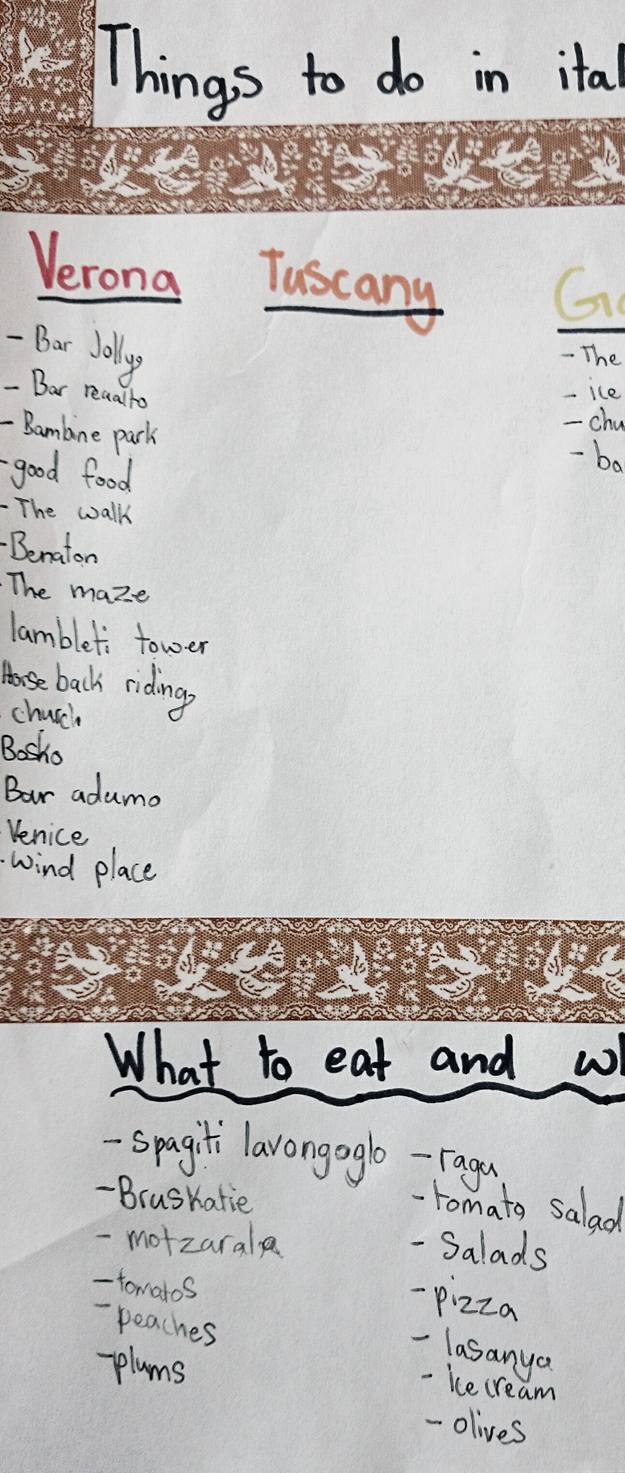 Things to do in ital
Verona
- Bar Jolly
- Bar reualto
- Bambine park
- good food
- The walk
- Benaton
The maze
lambleti tower
Horse back riding
church
Bosko
Bar adumo
Venice
wind place
Tuscany
- The
- ice
- chu
- ba
What to eat and wh
- spagiti lavongoglo
- Bruskatie
- motzarala
- tomatos
- peaches
- plums
- ragu
- tomato salad
- Salads
- pizza
- lasanya
- ice cream
- olives